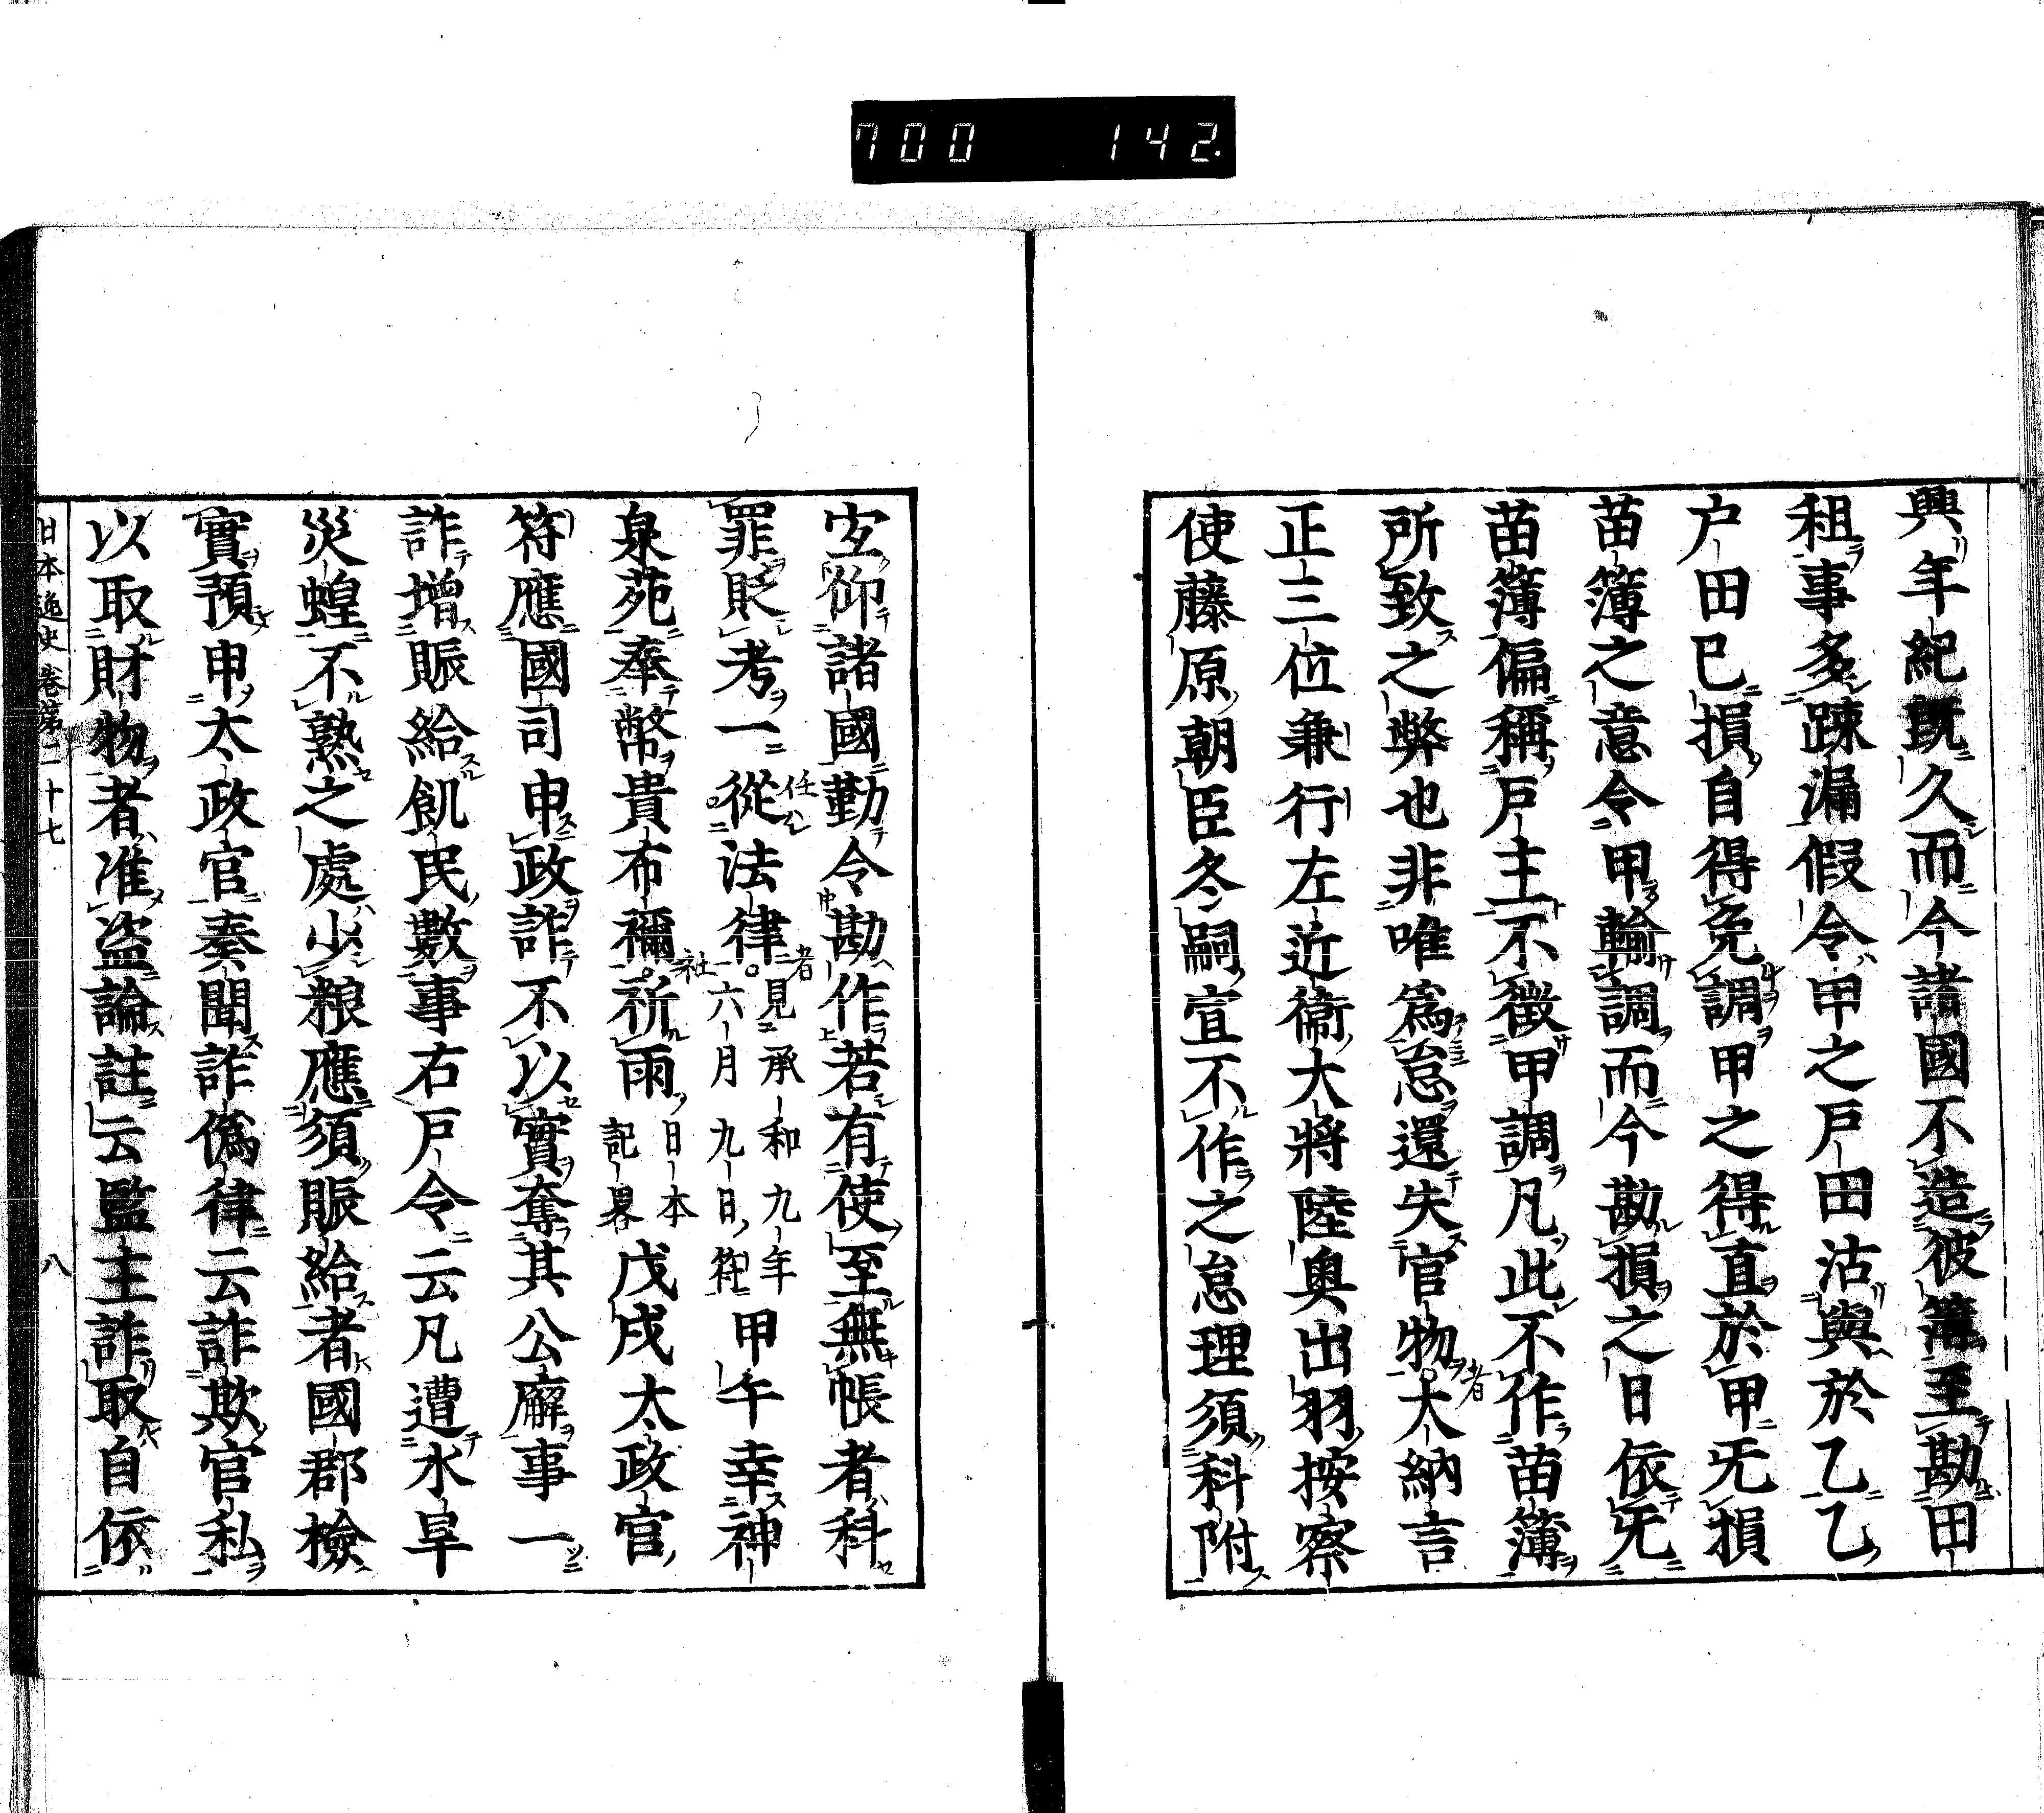 700 142.
興年紀既久而今諸國不造彼簿至勘田
租事多踈漏假令甲之戸田沽與於乙乙
户田巳損自得免調甲之得直於甲旡損
苗簿之意令甲輸調而今勘損之日依旡
苗簿偏稱戸主不徴甲調凡此不作苗簿
所致之弊也非唯爲怠還失官物者大納言
正三位兼行左近衞大將陸奥出羽按察
使藤原朝臣冬嗣宣不作之怠理須科附
宜仰諸國勤令勘作若有使至無帳者科
罪貶考一從任法律者見承和九年六月九日符甲午幸神
泉苑奉幣貴布禰社祈雨日本記畧戊戌太政官
符應國司申政詐不以實奪其公廨事一
詐増賑給飢民數事右戸令云凡遭水旱
災蝗不熟之處少粮應須賑給者國郡檢
實預申太政官奏聞詐僞律云詐欺官私
以取財物者准盗論註云監主詐取自依
日本逸史卷第二十七 八